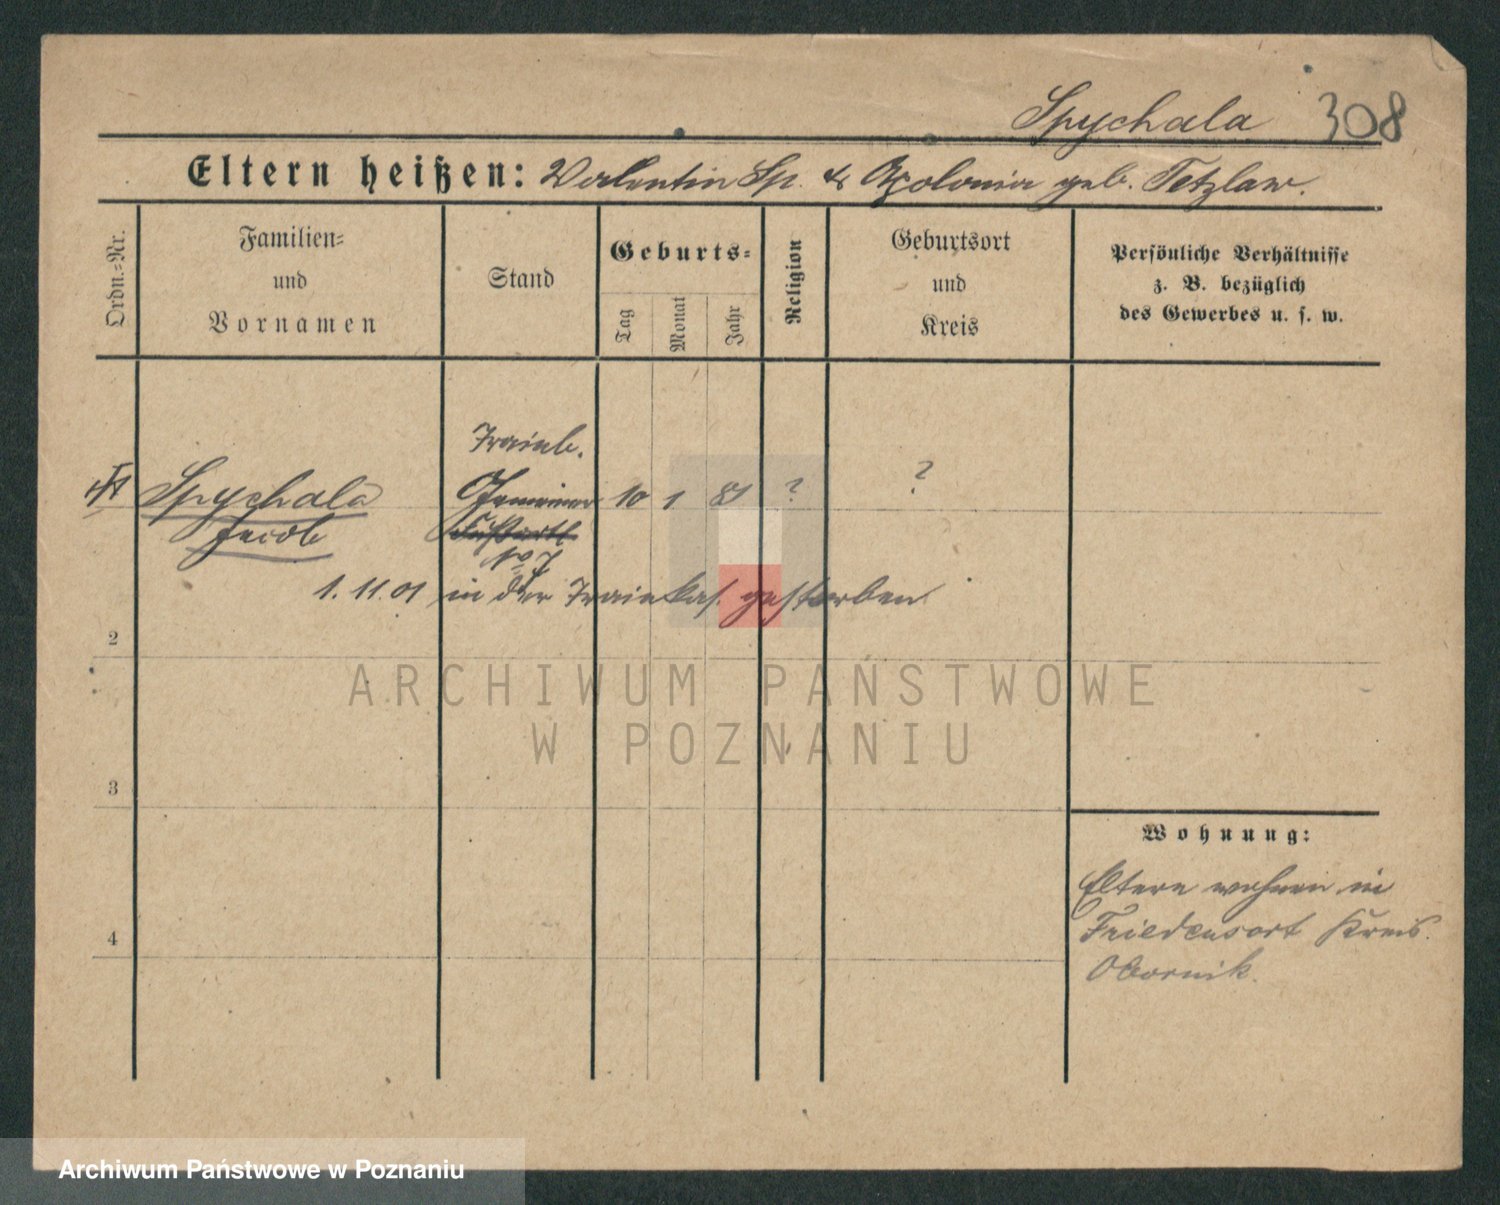 Spychala 308
Eltern heißen: Valentin Sp. & Apolonia geb. Tetzlaw.
Ordn.-Nr.
Familien-
und
Vornamen
Stand
Geburts-
Tag
Monat
Jahr
Religion
Geburtsort
und
Kreis
Persönliche Verhältnisse
z. B. bezüglich
des Gewerbes u. s. w.
Trainb.
Spychala Gemeiner 10 1 81 ? ?
Jacob Fußartl
No 7
1. 11. 01 in der Trainkas. gestorben
2
3
4
Wohnung:
Eltern wohnen in
Friedensort Kreis
Obornik.
ARCHIWUM PAŃSTWOWE
W POZNANIU
Archiwum Państwowe w Poznaniu